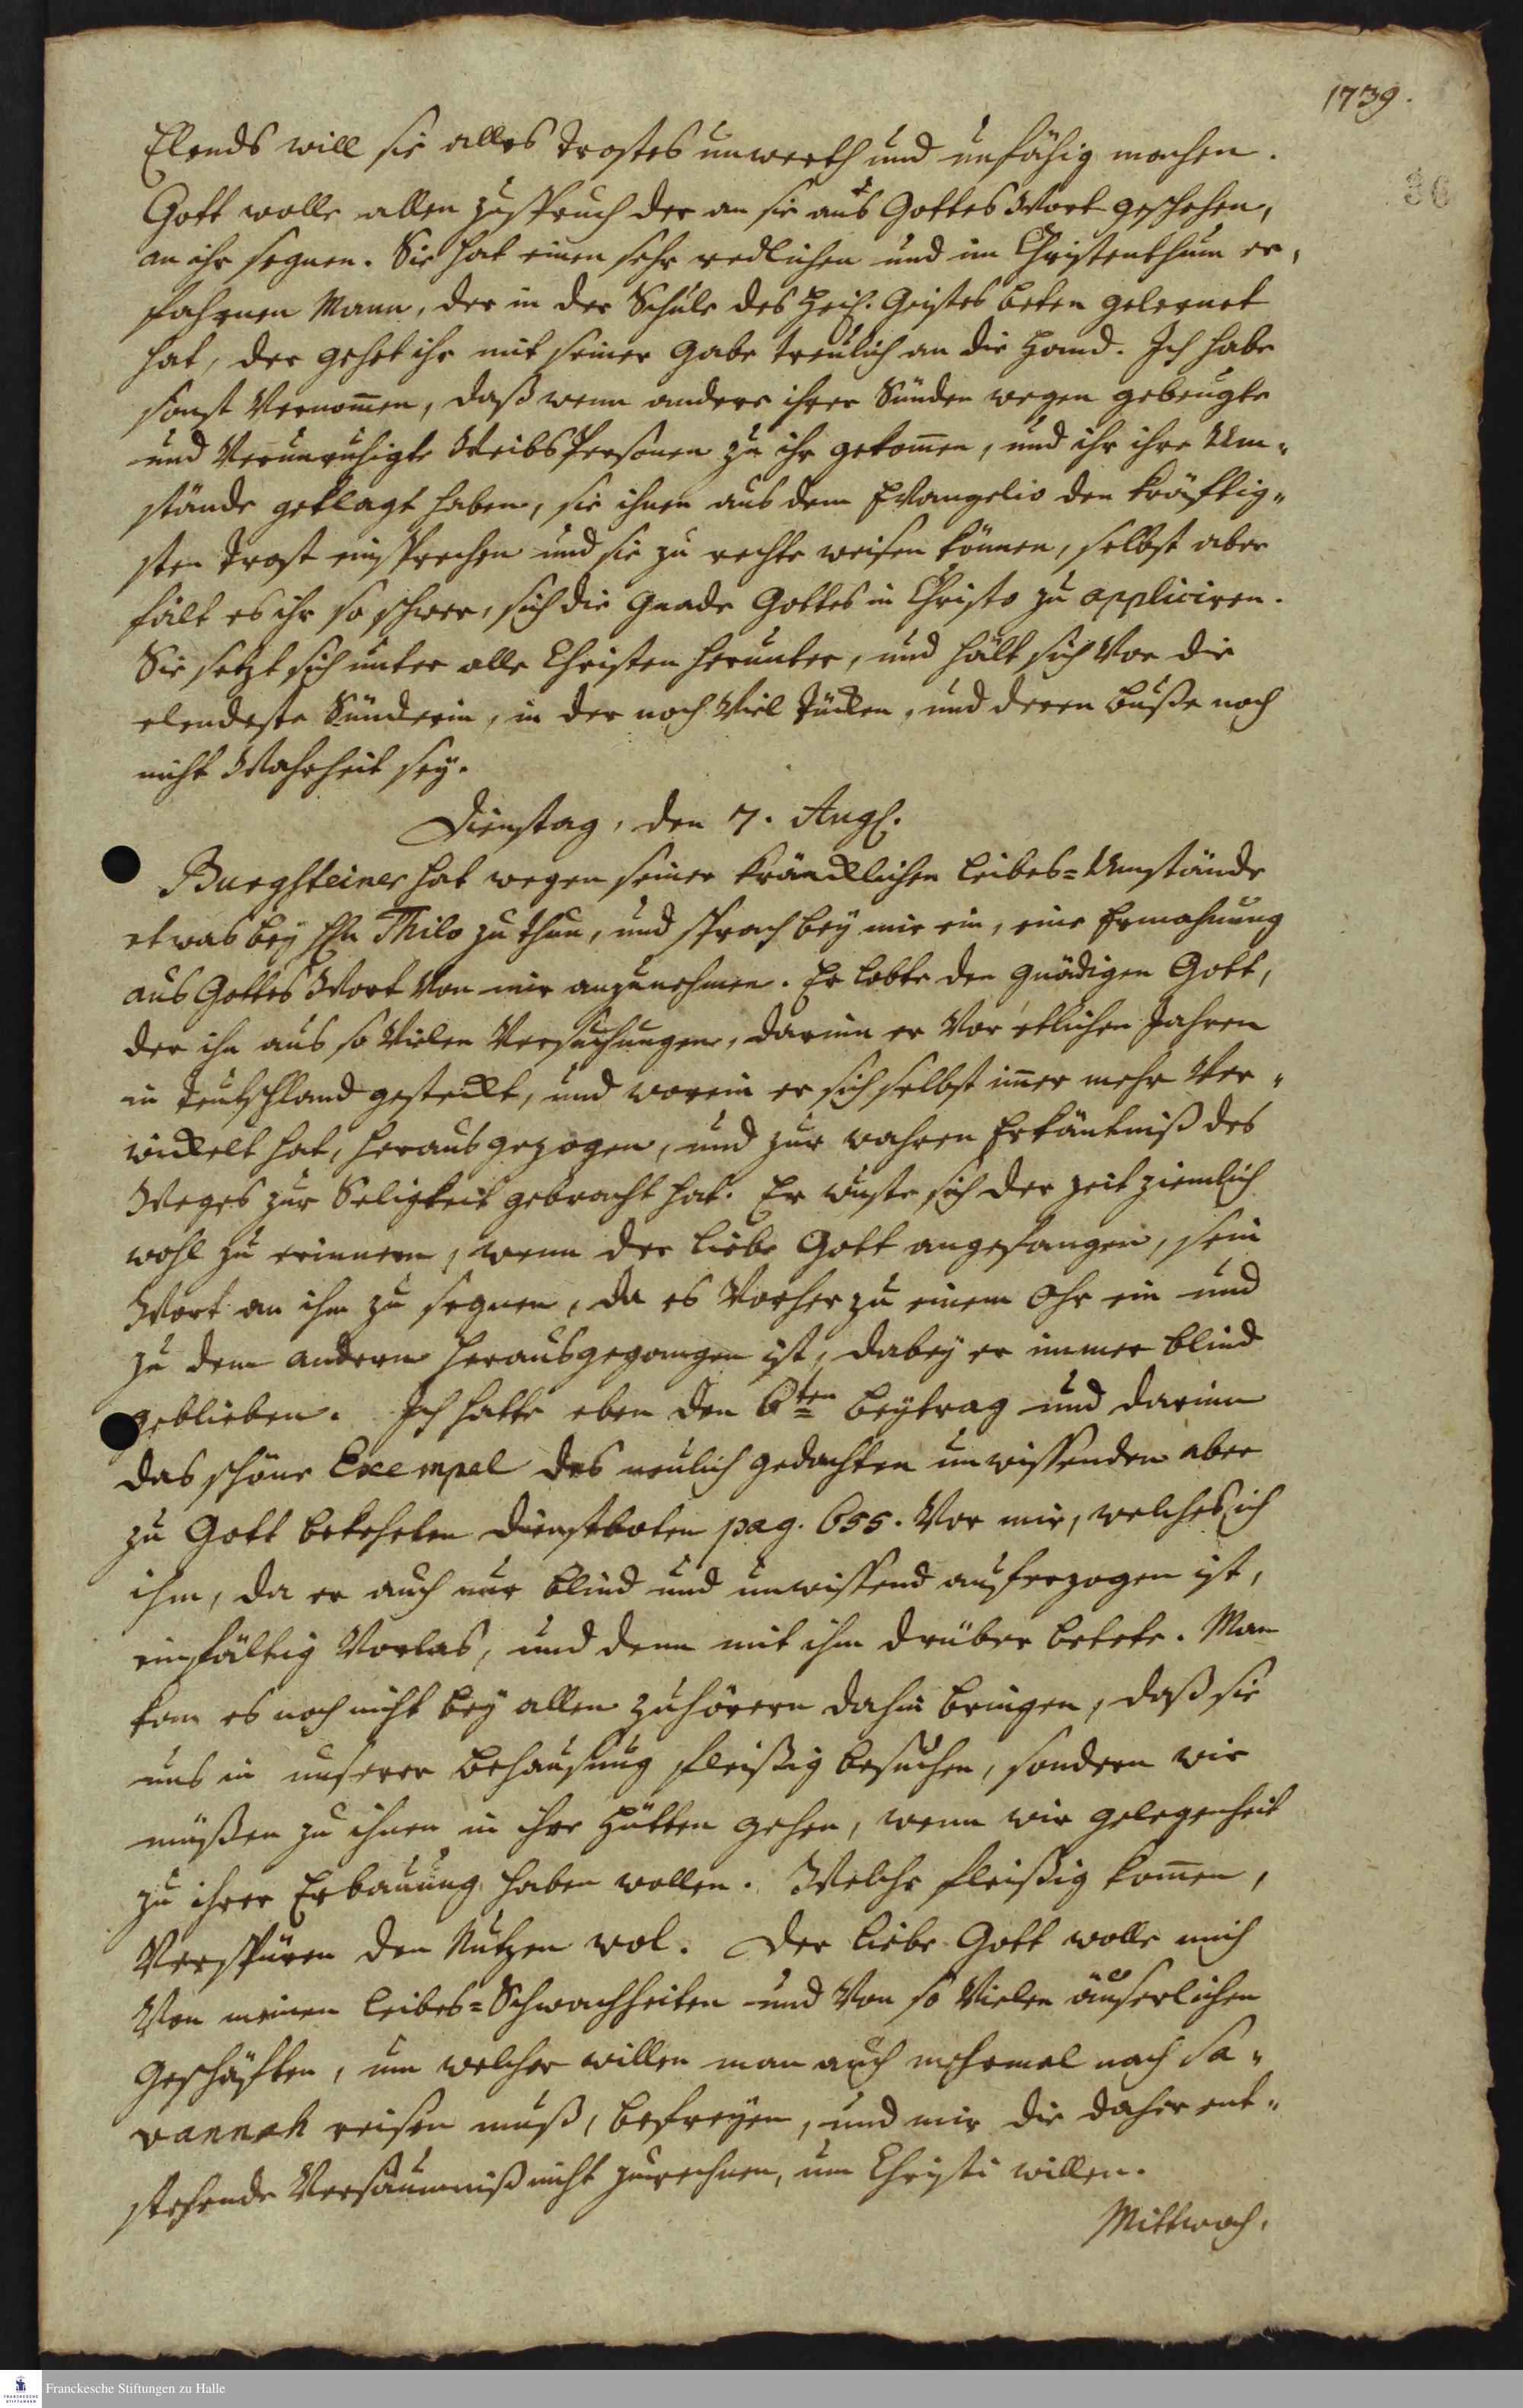 1739.
36
Elends will sie alles Trostes unwerth und unfähig machen.
Gott wolle allen Zuspruch der an sie aus Gottes Wort geschehen,
an ihr segnen. Sie hat einen sehr redlichen und im Christenthum er„
fahrnen Mann, der in der Schule des Heil. Geistes beten gelernet
hat, der gehet ihr mit seiner Gabe treulich an die Hand. Ich habe
sonst Vernom̄en, daß wenn andere ihrer Sünden wegen gebeugte
und Verunruhigte WeibsPersonen zu ihr gekom̄en, und ihr ihre Um„
stände geklagt haben, sie ihnen aus dem Evangelio den kräftig„
sten Trost einsprechen und sie zu rechte weisen können, selbst aber
fält es ihr so schwer, sich die Gnade Gottes in Christo zu appliciren.
Sie setzt sich unter alle Christen herunter, und hält sich Vor die
elendeste Sünderin, in der noch Viel Tücken, und deren Buße noch
nicht Wahrheit sey.
Dienstag, den 7. Aug.
Burgsteiner hat wegen seiner kräncklichen Leibes=Umstände
etwas bey Hn Thilo zu thun, und sprach bey mir ein, eine Ermahnung
aus Gottes Wort Von mir anzunehmen. Er lobte den gnädigen Gott,
der ihn aus so Vielen Versuchungen, darinn er Vor etlichen Jahren
in Teutschland gesteckt, und worein er sich selbst im̄er mehr Ver„
wickelt hat, herausgezogen, und zur wahren Erkäntniß des
Weges zur Seligkeit gebracht hat. Er wuste sich der Zeit ziemlich
wohl zu erinnern, wenn der liebe Gott angefangen, sein
Wort an ihm zu segnen, da es Vorher zu einem Ohr ein und
zu dem andern herausgegangen ist, dabey er immer blind
geblieben. Ich hatte eben den 6ten Beytrag und darinn
das schöne Exempel des neulich gedachten unwissenden aber
zu Gott bekehrten Dienstboten pag. 655. Vor mir, welches ich
ihm, da er auch nur blind und unwissend auferzogen ist,
einfältig Vorlas, und denn mit ihm drüber betete. Man
kan es noch nicht bey allen Zuhörern dahin bringen, daß sie
uns in unserer Behausung fleißig besuchen, sondern wir
müßen zu ihnen in ihre Hütten gehen, wenn wir gelegenheit
zu ihrer Erbauung haben wollen. Welche fleißig kom̄en,
Verspüren den Nutzen wol. Der liebe Gott wolle mich
Von meinen Leibes=Schwachheiten und Von so Vielen äuserlichen
Geschäften, um welcher willen man auch mehrmal nach Sa„
vannah reisen muß, befreyen, und mir die daher ent„
stehende Versäumniß nicht zurechnen, um Christi willen.
Mittwoch,
Franckesche Stiftungen zu Halle